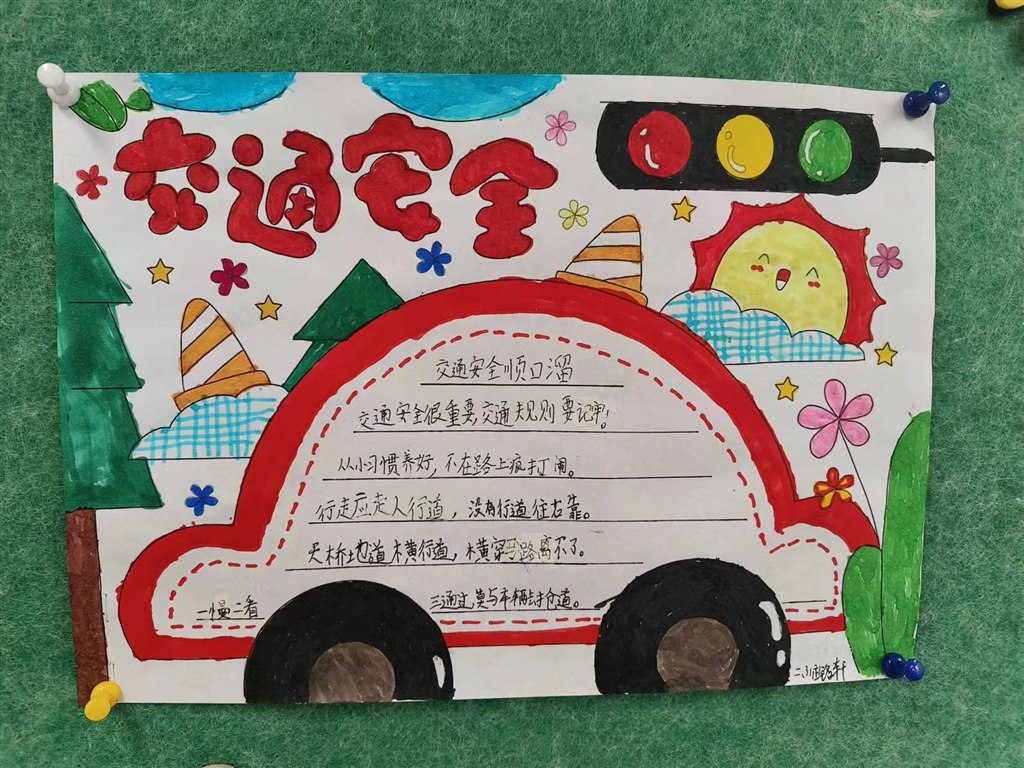 交通安全
交通安全顺口溜
交通安全很重要,交通规则要记牢!
从小习惯养好,不在路上疯打闹。
行走应走人行道,没有行道往右靠。
天桥地道横行道,横穿马路离不了。
一慢二看 三通过,莫与车辆去抢道。